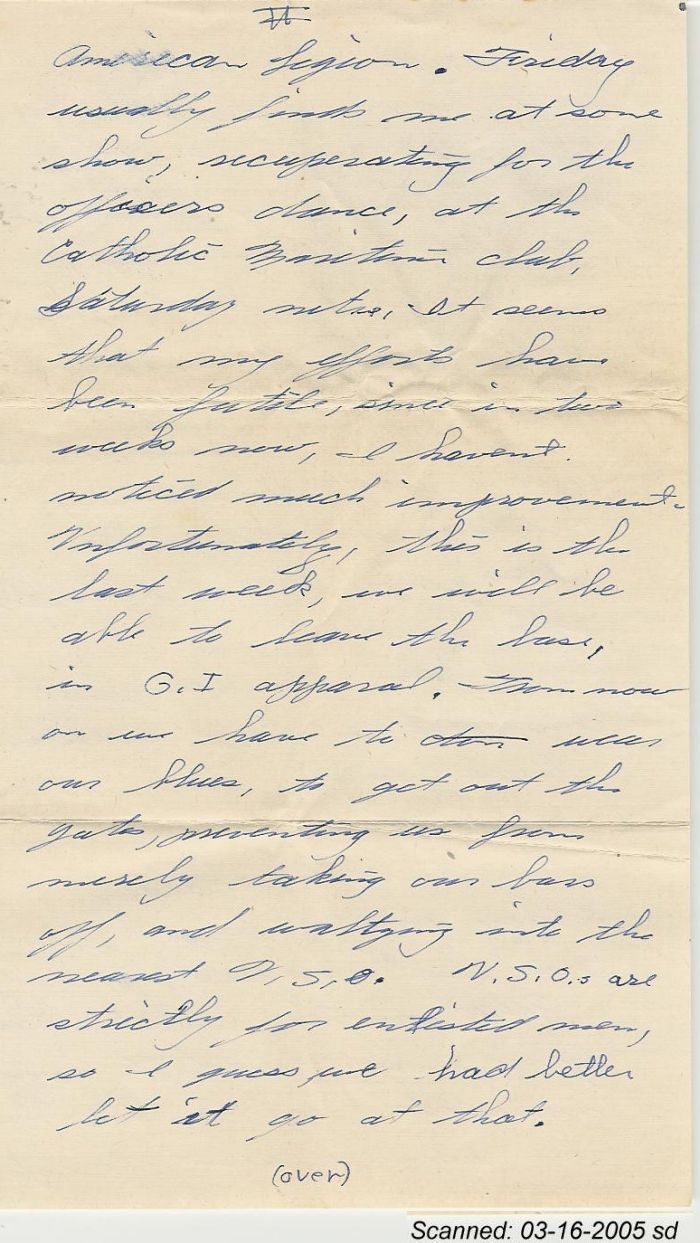 II
American Legion. Friday
usually finds me at some
show, recuperating for the
officers dance, at the
Catholic Maritime club,
Saturday nite. It seems
that my efforts have
been futile, since in two
weeks now, I havent
noticed much improvement.
Unfortunately, this is the
last week, we will be
able to leave the base,
in G.I apparal. From now
on we have to don wear
our blues, to get out the
gates, preventing us from
merely taking our bars
off, and waltzing into the
nearest U.S.O. U.S.O.s are
strictly for enlisted men,
so I guess we had better
let it go at that.
(over)
Scanned: 03-16-2005 sd